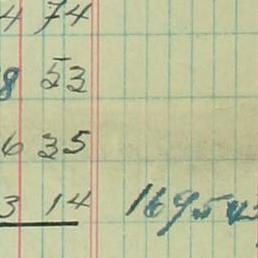 4 74
8 53
6 35
3 14 1695